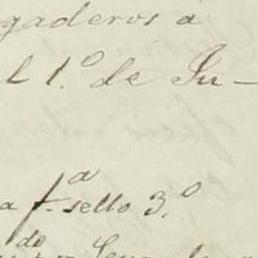 gaderos á
l 1.º de Ju-
a f.ª sello 3.º